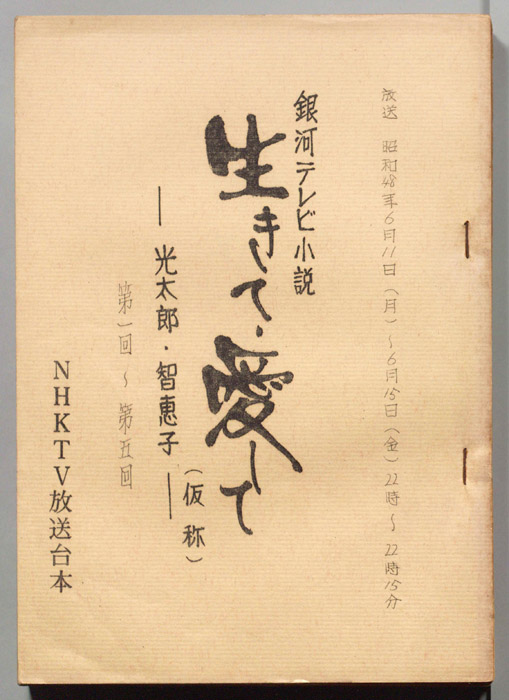 放送 昭和48年6月11日(月)~6月15日(金)22時~22時15分
銀河テレビ小説
生きて・愛して
(仮称)
― 光太郎・智恵子 ―
第一回~第五回
NHKTV放送台本